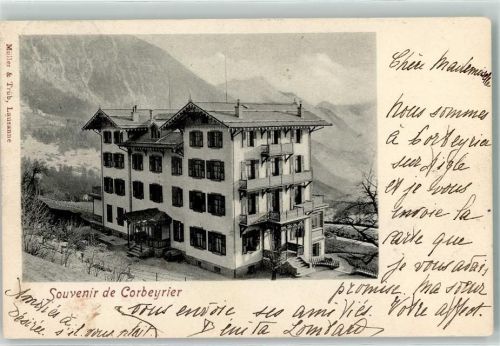 Müller & Trüb, Lausanne
Chère Mademoiselle
Nous sommes
à Corbeyrier
sur Aigle
et je vous
envoie la
carte que
je vous avais
promise. Ma sœur
vous envoie ses amitiés. Votre affect.
Lombard
Souvenir de Corbeyrier
Amitiés à
Désirée s'il vous plait